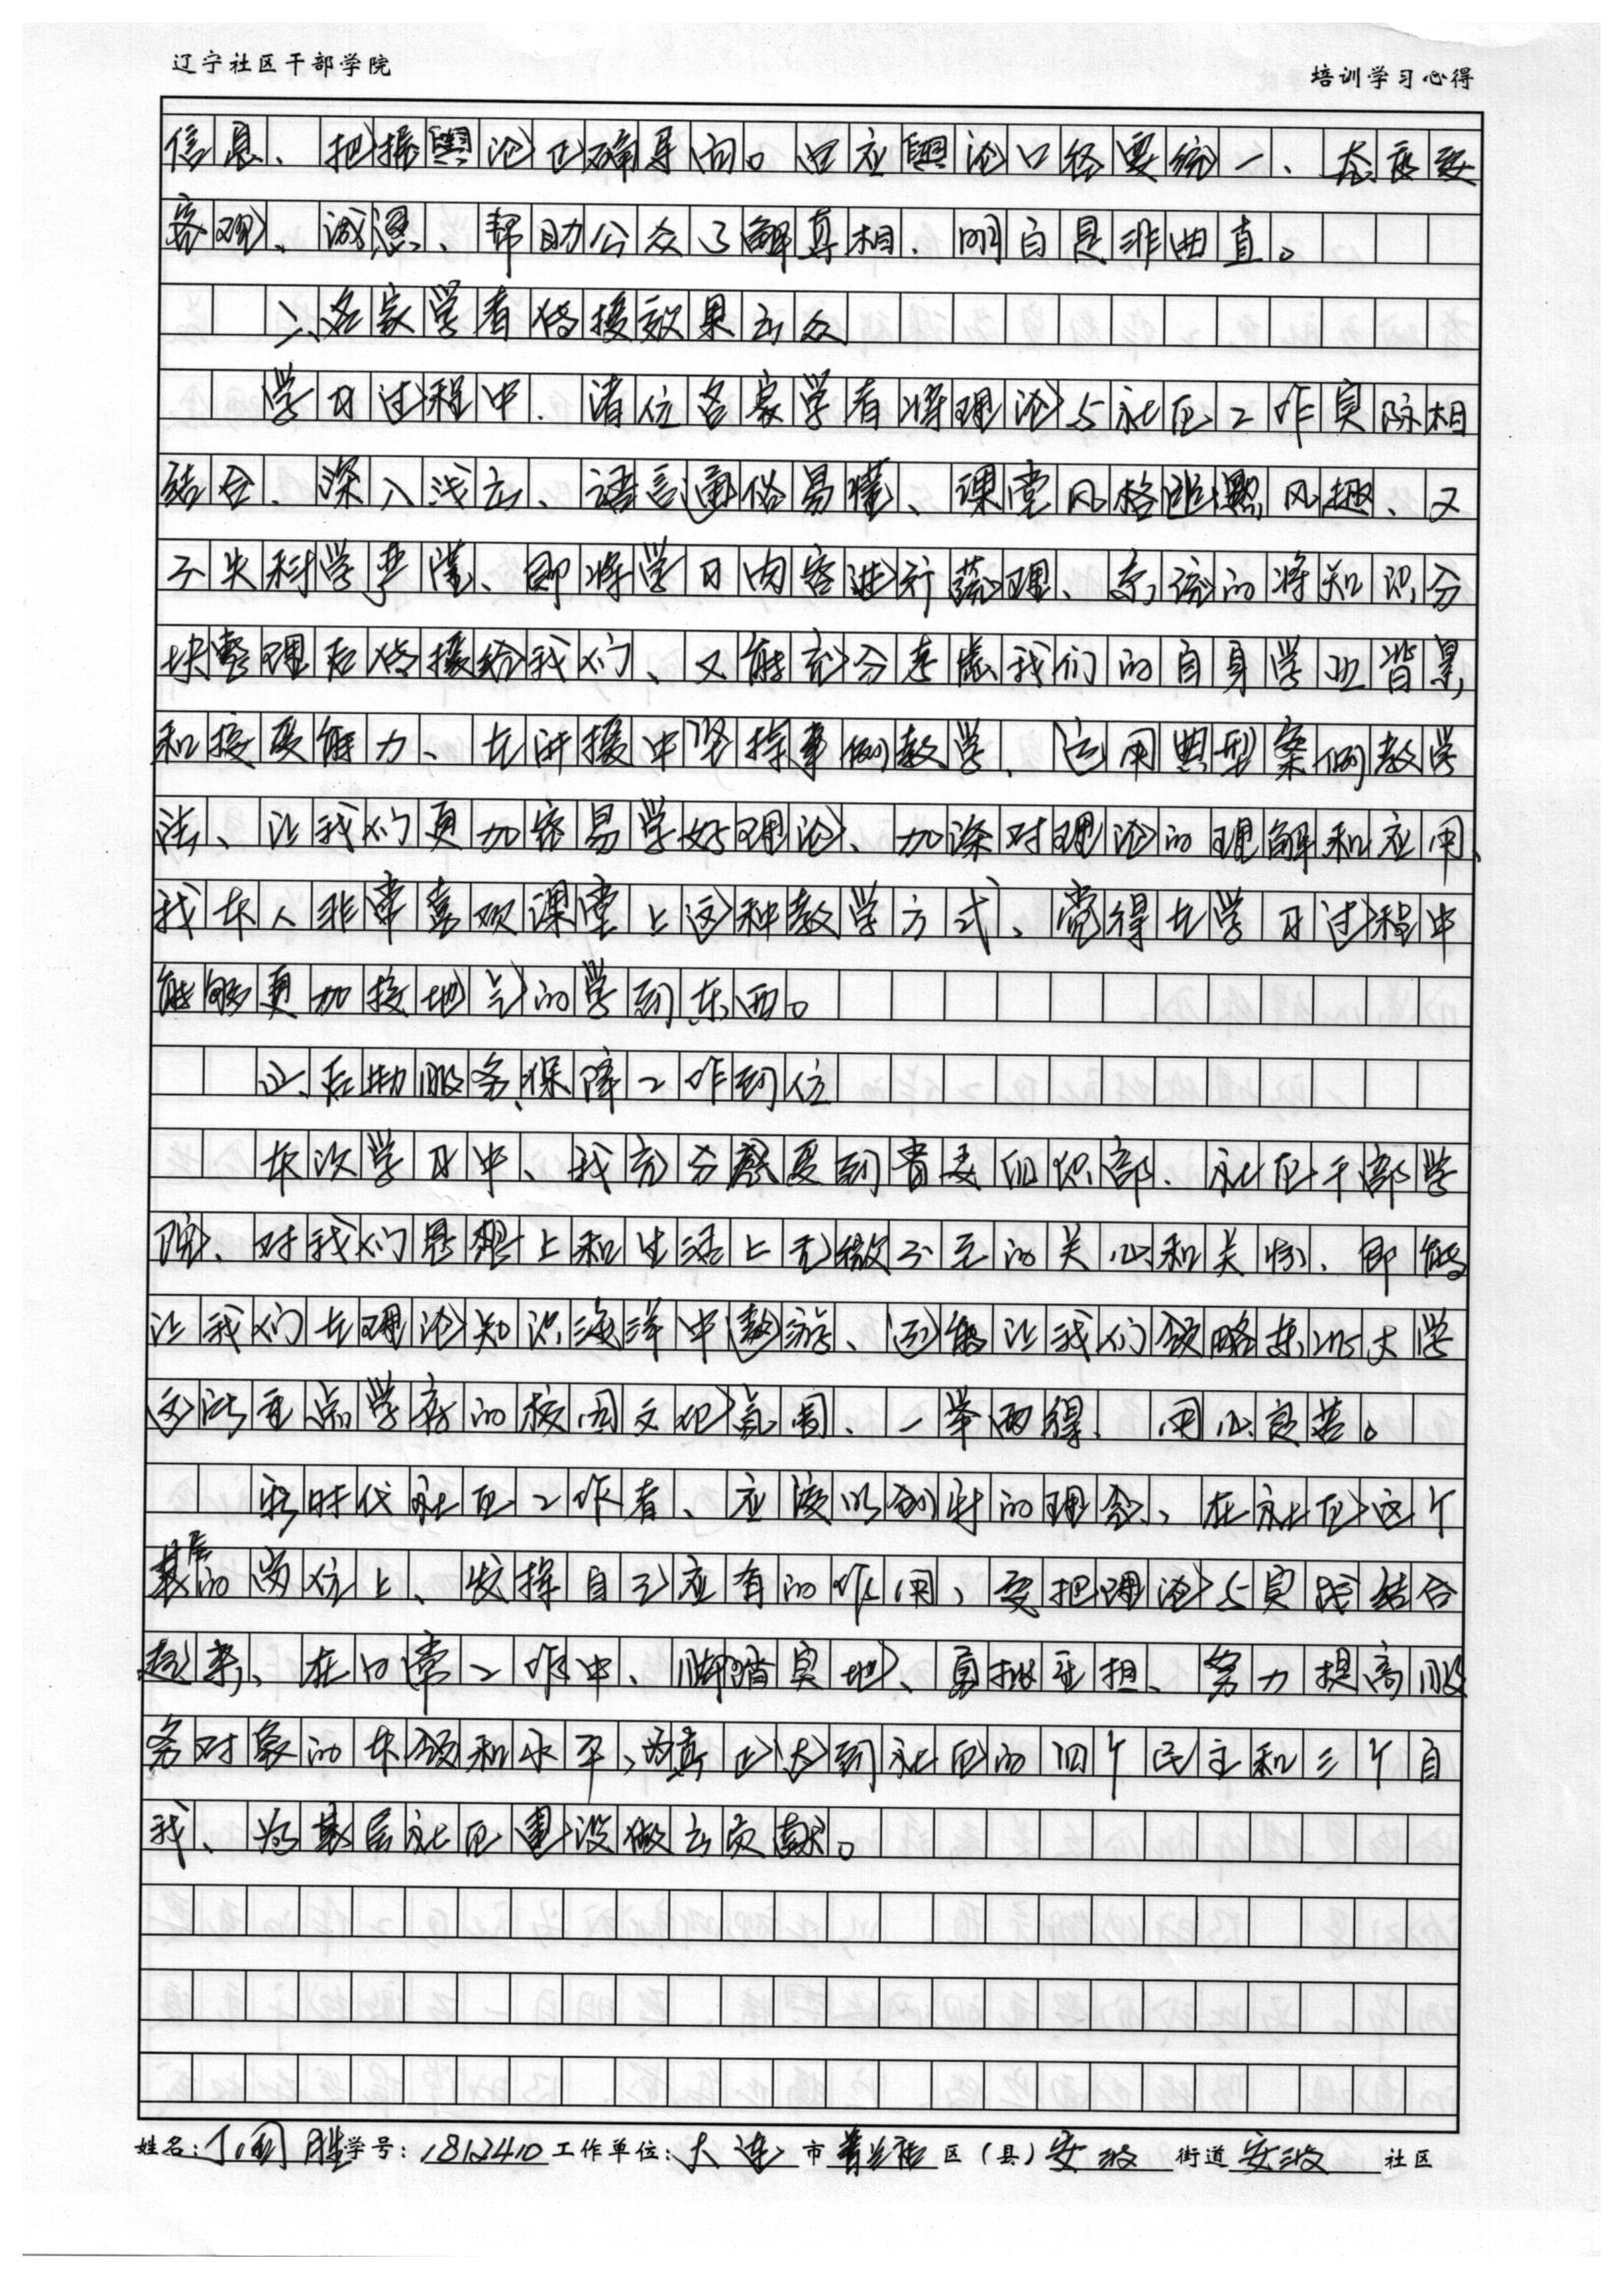 辽宁社区干部学院
培训学习心得
信息、把握舆论正确导向。回应舆论口径要统一、态度要
客观、诚恳、帮助公众了解真相、明白是非曲直。
六、名家学者传授效果出众
学习过程中、诸位名家学者将理论与社区工作实际相
结合、深入浅出、语言通俗易懂、课堂风格幽默风趣、又
不失科学严谨、即将学习内容进行梳理、系统的将知识分
块整理后传授给我们、又能充分考虑我们的自身学业背景
和接受能力、在讲授中坚持事例教学、运用典型案例教学
法、让我们更加容易学好理论、加深对理论的理解和应用、
我本人非常喜欢课堂上这种教学方式、觉得在学习过程中
能够更加接地气的学到东西。
七、后勤服务保障工作到位
本次学习中、我充分感受到省委组织部、社区干部学
院、对我们思想上和生活上无微不至的关心和关怀、即能
让我们在理论知识海洋中遨游、还能让我们领略东北大学
这所重点学府的校园文化氛围、一举两得、用心良苦。
新时代社区工作者、应该以创新的理念、在社区这个
基层的岗位上、发挥自己应有的作用、要把理论与实践结合
起来、在日常工作中、脚踏实地、勇挑重担、努力提高服
务对象的本领和水平、为真正达到社区的四个民主和三个自
我、为基层社区建设做出贡献。
姓名：丁 胜 学号：1812410 工作单位：大连 市 普兰店 区（县）安波 街道 安波 社区